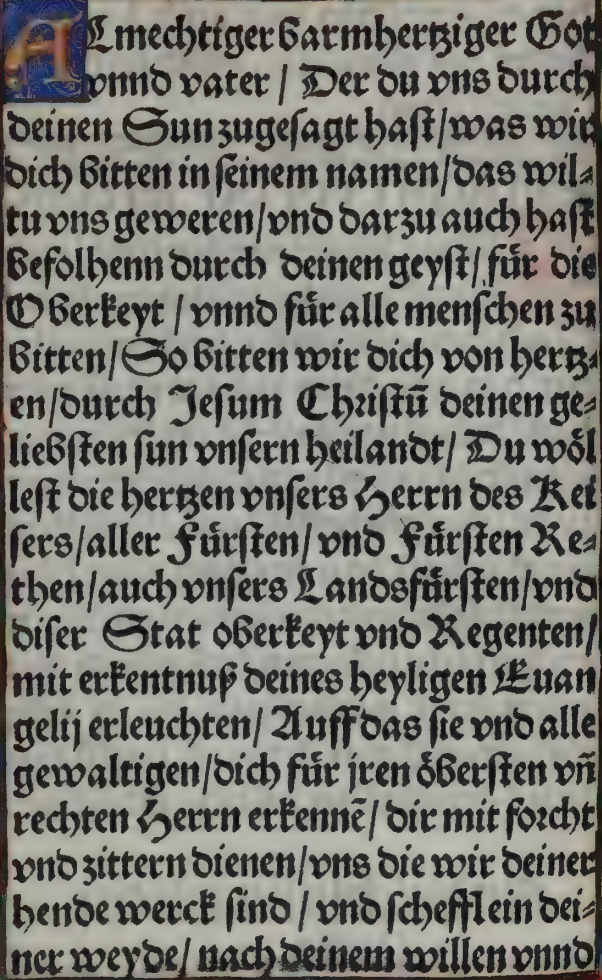 ALmechtiger barmhertziger Got
vnnd vater / Der du vns durch
deinen Sun zugesagt hast/was wir
dich bitten in seinem namen/das wil⸗
tu vns geweren/vnd darzu auch hast
befolhenn durch deinen geyst/ für die
Oberkeyt / vnnd für alle menschen zu
bitten/So bitten wir dich von hertz⸗
en/durch Jesum Christū deinen ge⸗
liebsten sun vnsern heilandt/ Du wöl
lest die hertzen vnsers Herrn des Kei
sers/aller Fürsten/ vnd Fürsten Re⸗
then/auch vnsers Landsfürsten/vnd
diser Stat oberkeyt vnd Regenten/
mit erkentnuß deines heyligen Euan
gelij erleuchten/ Auff das sie vnd alle
gewaltigen/dich für jren öbersten vñ
rechten Herrn erkennē/ dir mit forcht
vnd zittern dienen/vns die wir deiner
hende werck sind / vnd schefflein dei⸗
ner weyde/ nach deinem willen vnnd